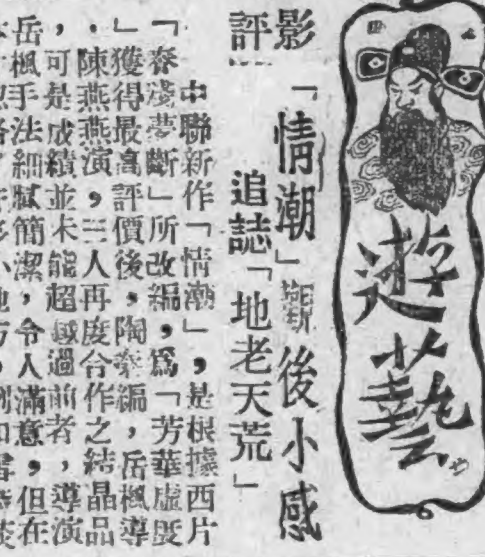 遊藝
影評
「情潮」觀後小感
追誌「地老天荒」
中聯新作「情潮」，是根據西片
「春殘夢斷」所改編，爲「芳華虛度
」獲得最高評價後，陶秦編，岳楓導
．陳燕燕演，三人再度合作之結晶品
，可是成績並未能超越過前者，導演
岳楓手法細膩簡潔，令人滿意，但在